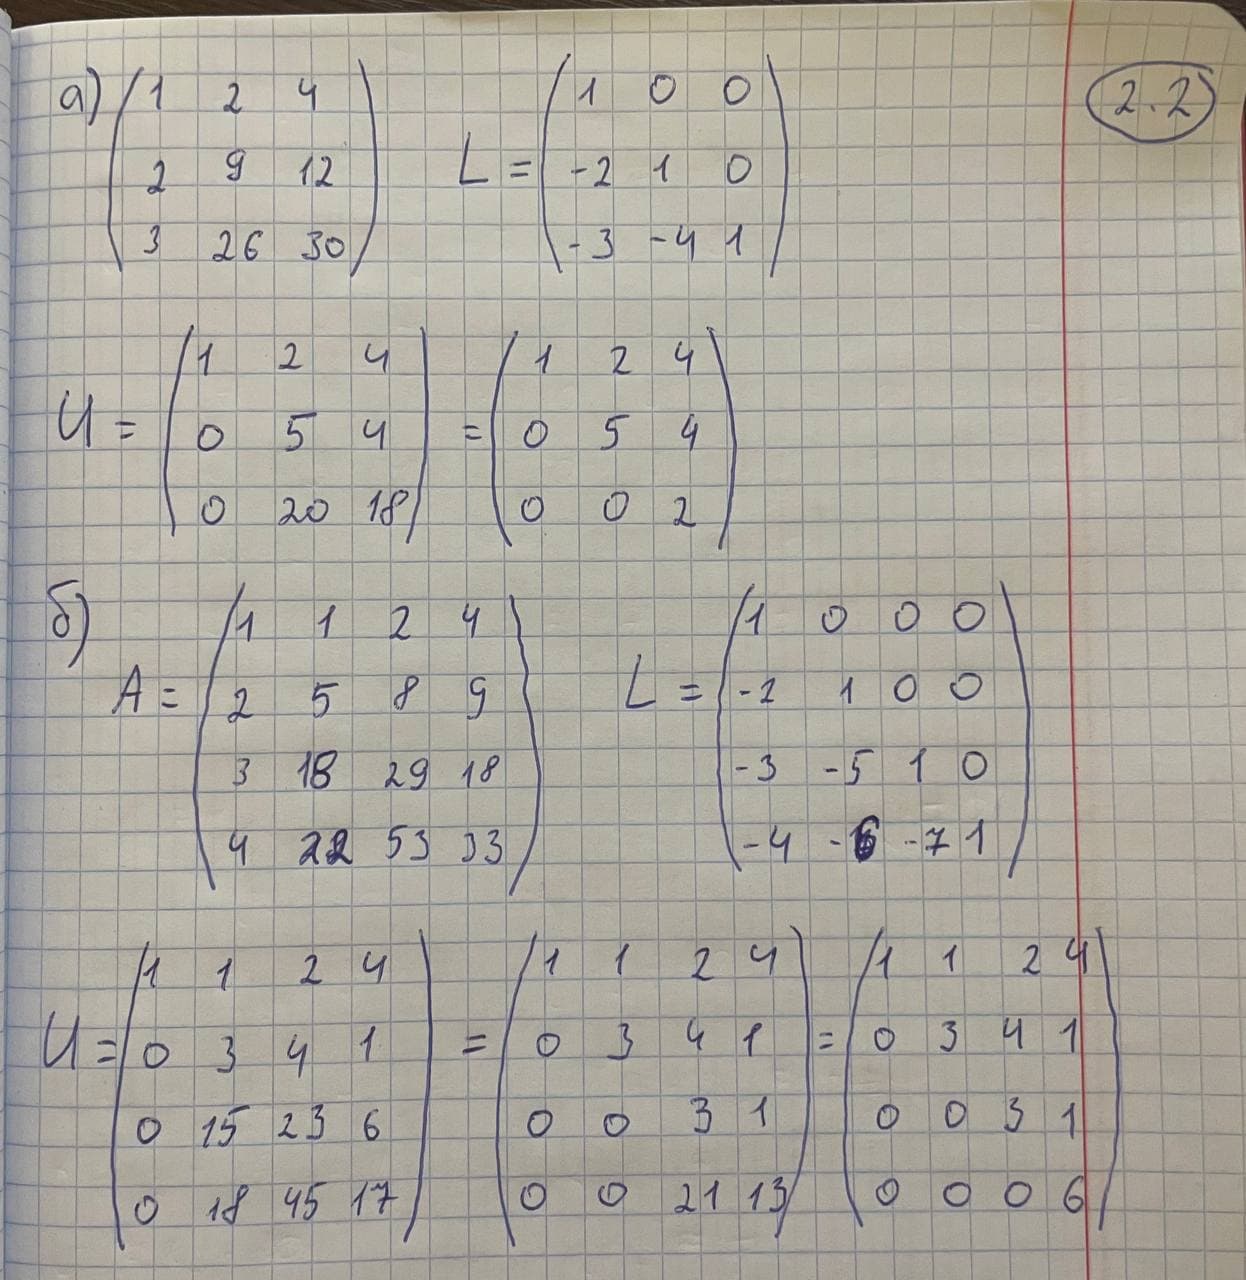 а) (1 2 4
2 9 12
3 26 30) L = (1 0 0
-2 1 0
-3 -4 1) 2.2
U = (1 2 4
0 5 4
0 20 18) = (1 2 4
0 5 4
0 0 2)
б) A = (1 1 2 4
2 5 8 9
3 18 29 18
4 22 53 33) L = (1 0 0 0
-2 1 0 0
-3 -5 1 0
-4 -6 -7 1)
U = (1 1 2 4
0 3 4 1
0 15 23 6
0 18 45 17) = (1 1 2 4
0 3 4 1
0 0 3 1
0 0 21 13) = (1 1 2 4
0 3 4 1
0 0 3 1
0 0 0 6)